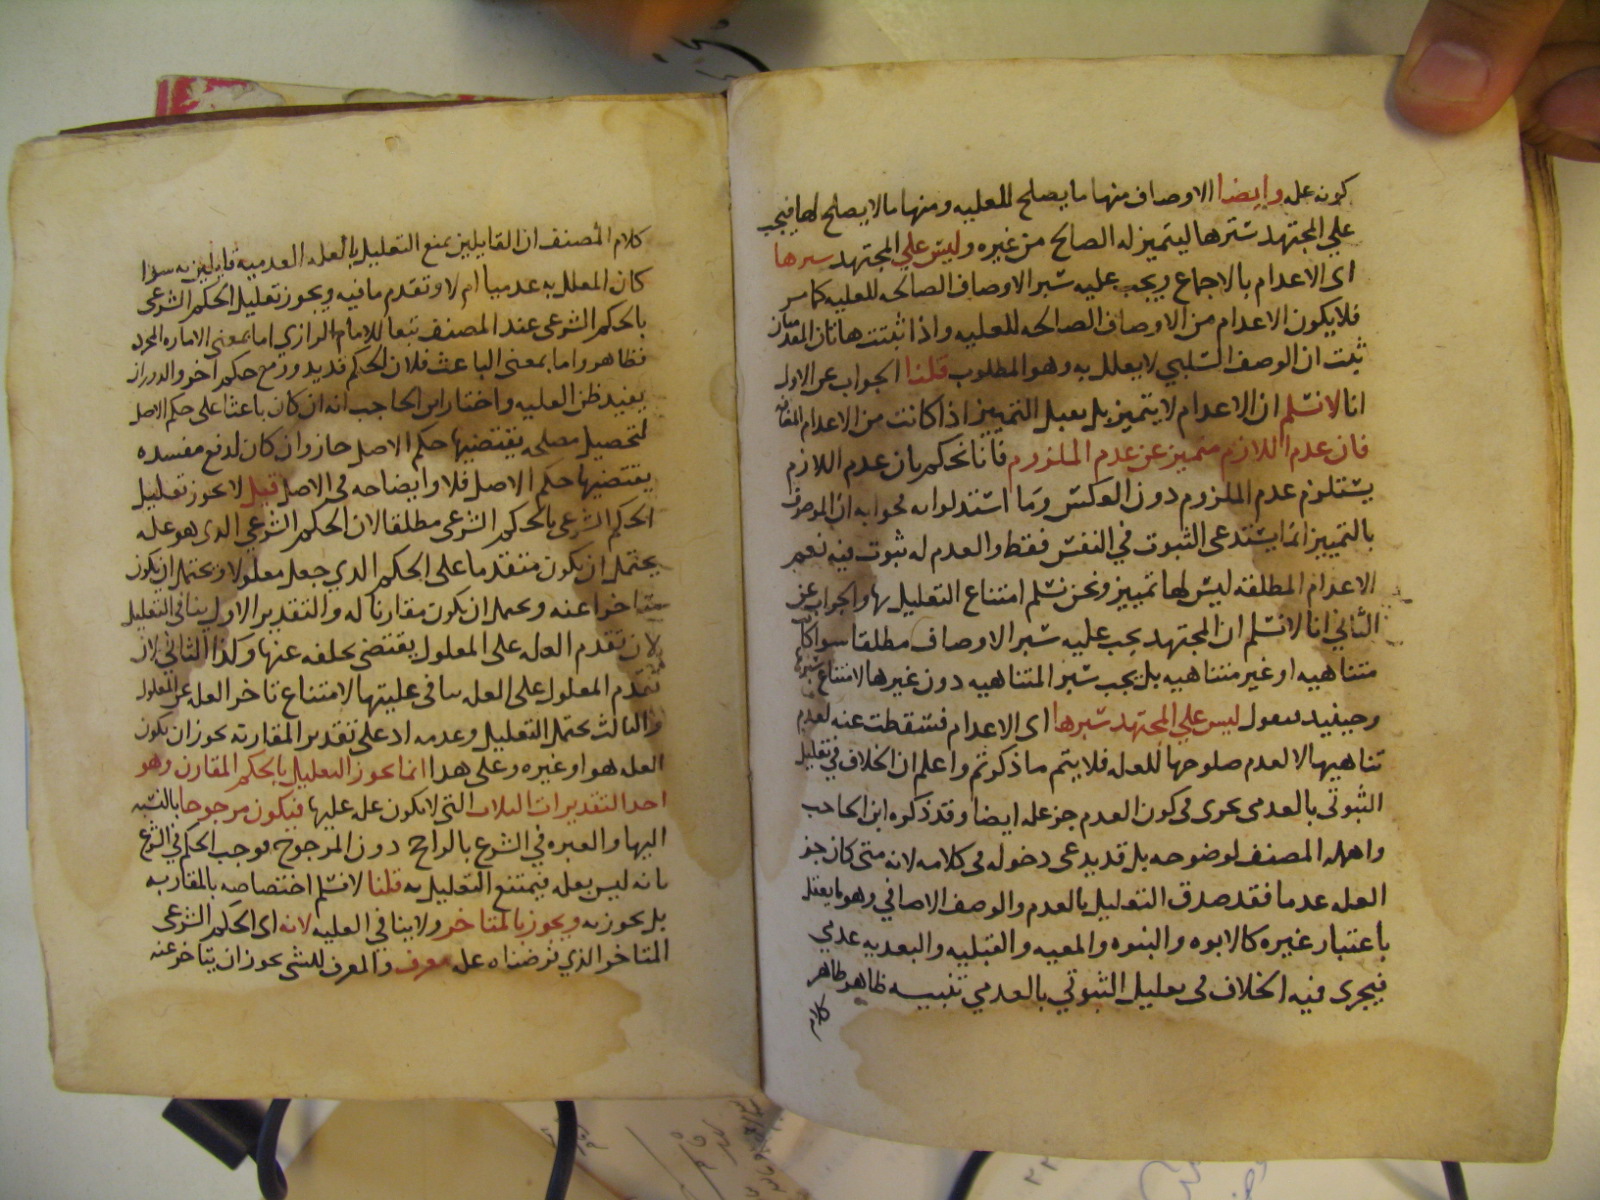 كونه عله وايضا الاوصاف منها ما يصلح للعليه ومنها ما لا يصلح لها فيجب
علي المجتهد سبرها ليتميز له الصالح من غيره وليس علي المجتهد سبرها
اى الاعدام بالاجماع ويجب عليه سبر الاوصاف الصالحه للعليه كما مر
فلا يكون الاعدام من الاوصاف الصالحه للعليه واذا ثبتت هاتان المقدمتان
ثبت ان الوصف السلبي لا يعلل به وهو المطلوب قلنا الجواب عن الاول
انا لا نسلم ان الاعدام لا يتميز بل يقبل التمييز اذا كانت من الاعدام المضافه
فان عدم اللازم متميز عن عدم الملزوم فانا نحكم بان عدم اللازم
يستلزم عدم الملزوم دون العكس وما استدلوا به فجوابه ان الموصوف
بالتمييز انما يستدعى الثبوت في النفس فقط والعدم له ثبوت فيه نعم
الاعدام المطلقه ليس لها تمييز ونحن نسلم امتناع التعليل بها والجواب عن
الثاني انا لا نسلم ان المجتهد يجب عليه سبر الاوصاف مطلقا سوا كانت
متناهيه او غير متناهيه بل يجب سبر المتناهيه دون غيرها لامتناع سبرها
وحينيد نقول ليس علي المجتهد سبرها اى الاعدام فسقطت عنه لعدم
تناهيها لا لعدم صلوحها للعله فلا يتم ما ذكرتم واعلم ان الخلاف في تعليل
الثبوتي بالعدمى يجرى في كون العدم جز عله ايضا وقد ذكره ابن الحاجب
واهمله المصنف لوضوحه بل قد يدعى دخوله في كلامه لانه متى كان جز
العله عدما فقد صدق التعليل بالعدم والوصف الاضافي وهو ما يعقل
باعتبار غيره كالابوه والبنوه والمعيه والقبليه والبعديه عدمي
فيجرى فيه الخلاف فى تعليل الثبوتي بالعدمي تنبيه ظاهر ظاهر
كلام
كلام المصنف ان القايلين بمنع التعليل بالعله العدميه قايلين به سوا
كان المعلل به عدميا ام لا وتقدم ما فيه ويجوز تعليل الحكم الشرعى
بالحكم الشرعى عند المصنف تبعا للامام الرازي اما بمعنى الاماره المجرد
فظاهر واما بمعنى الباعث فلان الحكم قد يدور مع حكم اخر والدوران
يفيد ظن العليه واختار ابن الحاجب انه ان كان باعثا على حكم الاصل
لتحصيل مصلحه يقتضيها حكم الاصل جاز وان كان لدفع مفسده
يقتضيها حكم الاصل فلا وايضاحه في الاصل قيل لا يجوز تعليل
الحكم الشرعى بالحكم الشرعى مطلقا لان الحكم الشرعي الذى هو عله
يحتمل ان يكون متقدما على الحكم الذي جعل معلولا ويحتمل ان يكون
متاخرا عنه ويحتمل ان يكون مقارنا له والتقدير الاول ينافي التعليل
لان تقدم العله على المعلول يقتضى تخلفه عنها وكذا الثاني لان
تقدم المعلول على العله ينافى عليتها لامتناع تاخر العله عن المعلول
والثالث يحتمل التعليل وعدمه اذ على تقدير المقارنه يجوز ان يكون
العله هو او غيره وعلى هذا انما يجوز التعليل بالحكم المقارن وهو
احد التقديرات الثلاث التى لا يكون عله عليها فيكون مرجوحا بالنسبه
اليها والعبره في الشرع بالراجح دون المرجوح فوجب الحكم في الشرع
بانه ليس بعله فيمتنع التعليل به قلنا لا نسلم اختصاصه بالمقارنه
بل يجوز به ويجوز بالمتاخر ولا ينافى العليه لانه اى الحكم الشرعى
المتاخر الذي فرضناه عله معرف والمعرف للشى يجوز ان يتاخر عنه